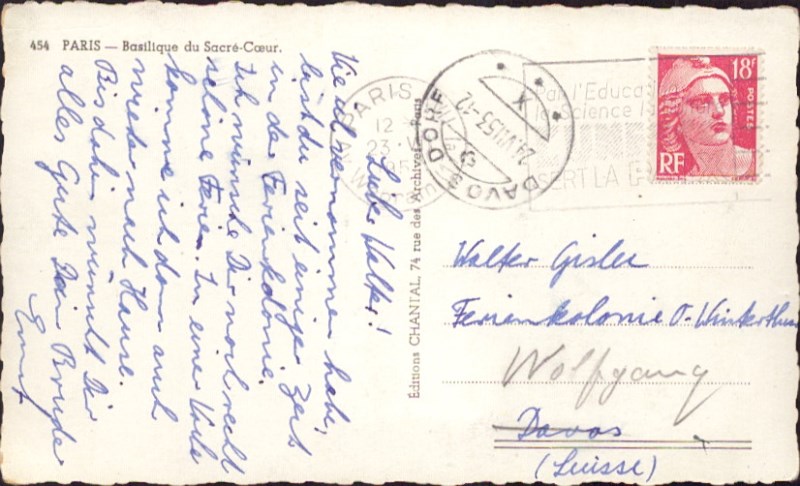 454 PARIS — Basilique du Sacré-Cœur.
Liebe Walter!
Wie ich vernommen habe,
bist du seit einiger Zeit
in der Ferienkolonie.
Ich wünsche Dir noch recht
schöne Ferien. In einer Woche
komme ich dann auch
wieder nach Hause.
Bis dahin wünscht Dir
alles Gute Dein Bruder
Ernst
Éditions CHANTAL, 74 rue des Archives - Paris
PARIS
12
23
DAVOS DORF
24.VII.53-12
X
Par l'Educat
la Science
SERT LA
18F
POSTES
RF
Walter Gisler
Ferienkolonie O-Winterthur
Wolfgang
Davos
(Suisse)